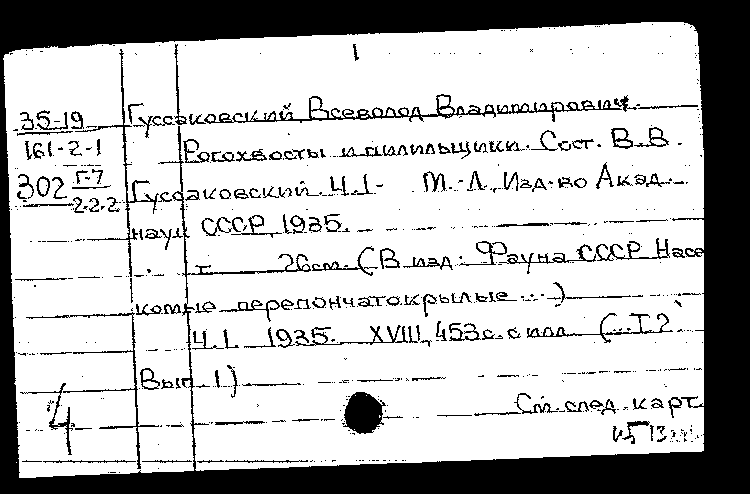 1
35-19 Гуссаковский Всеволод Владимирович.
161-2-1 Рогохвосты и пилильщики. Сост. В.В.
302 Г-7 Гуссаковский Ч.1- М.-Л., Изд-во Акад.
2-2-2
наук СССР, 1935.
т 26см. (В изд: Фауна СССР Насе
комые перепончатокрылые ...)
Ч.1. 1935. XVIII, 453с. с илл (...Т2
Вып 1)
4
См след. карт